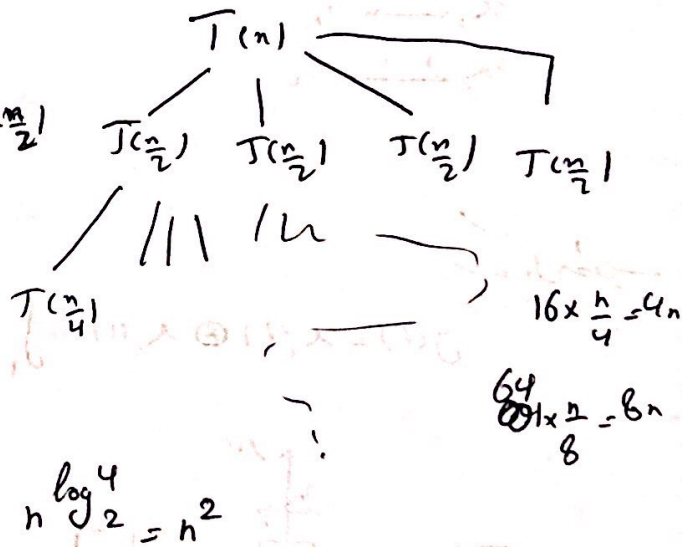 T(n)
n/2)
T(n/2) T(n/2) T(n/2) T(n/2)
T(n/4)
16 × n/4 = 4n
64 × n/8 = 8n
n^log_2^4 = n^2